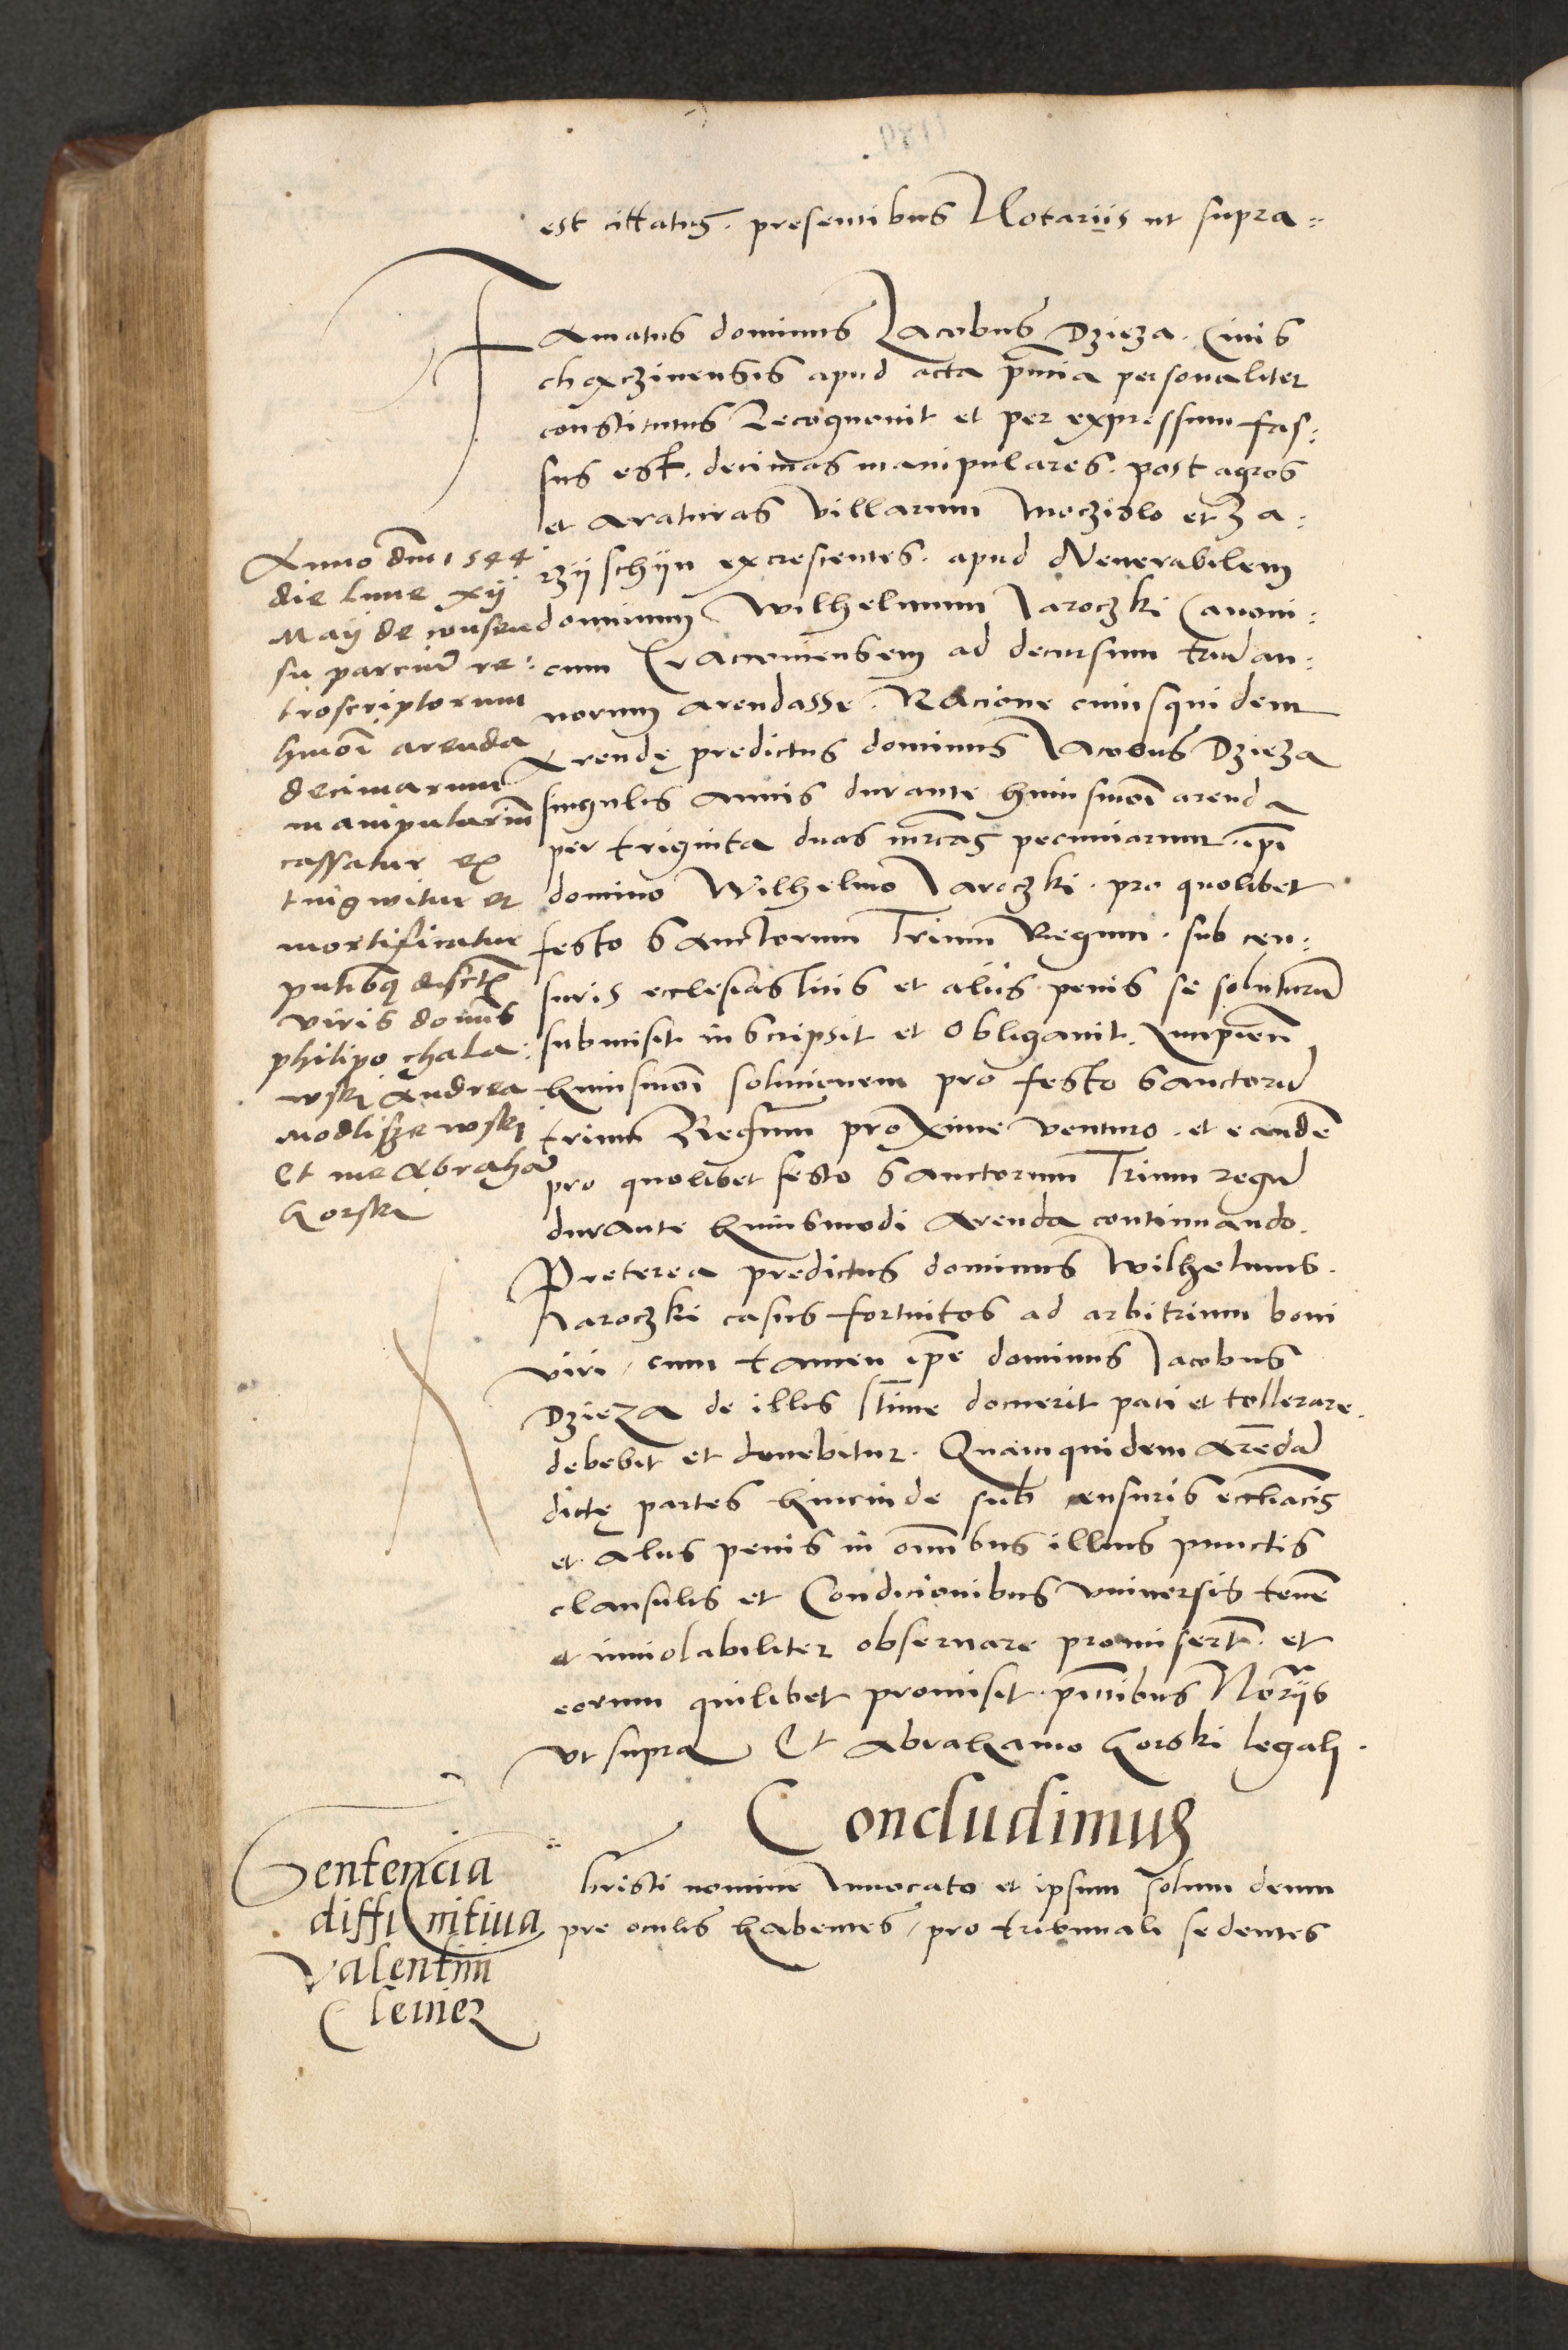 est cittatus. presentibus Notariis ut supra
Famatus dominus Jacobus Dzieza. Civis
chexczinensis apud acta pñtia personaliter
constitutus Recognovit et per expressum fas:
sus est. decimas manipulares. post agros
et araturas villarum Moczidlo et Za:
rzÿschÿn excrescentes. apud Venerabilem
dominum Wilhelmum Jaroczki Canoni:
cum Cracoviensem ad decursum trium an:
norum arendasse. Racione cuiusquidem
Arendę predictus dominus Jacobus Dzieza
singulis annis durante huiusmõi arenda
per triginta duas mrcas pecuniarum. ipĩ
domino Wilhelmo Jaroczki. pro quolibet
festo Sanctorum Trium Regum. sub cen:
suris ecclesiasticis et aliis penis se soluturũ
submisit inscripsit et obligavit. Incipien
huiusmõi solucionem pro festo Sanctorũ
trium Regum proxime venturo. et eandẽ
pro quolibet festo Sanctorum Trium regũ
durante huiusmodi Arenda continuando.
Preterea predictus dominus Wilhelmus.
Jaroczki casus fortuitos ad arbitrium boni
viri, cum tamen ipẽ dominus Jacobus
Dzieza de illis ltime docuerit pati et tollerare.
debebit et tenebitur. Quamquidem Arẽdã
dictę partes hincinde sub censuris eccliacis
et aliis penis in omĩbus illius punctis
clausulis et Condicionibus universis tenẽ
et inviolabiliter observare promisert. et
eorum quilibet promisit. pñtibus Notriis
ut supra Et Abrahamo Gorski legali.
Anno dñi 1544
die lune xij
Maij de consen
su parciũ re:
troscriptorum
hmõi arenda
decimarum
manipularium
cassatur ex
tingwitur et
mortificatur
pntibus discrt
viris domĩs
philipo chala:
wski Andrea
Modlissewski
Et me Abrahã
Gorski
Concludimus
Sentencia
diffinitiva
Valentini
Cleiner
hristi nomine Invocato et ipsum solum deum
pre oculis habentes, pro tribunali sedentes